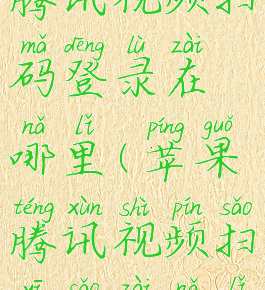 腾讯视频扫
mǎ dēng lù zài
码登录在
nǎ lǐ píng guǒ
哪里(苹果
téng xùn shì pín sǎo
腾讯视频扫